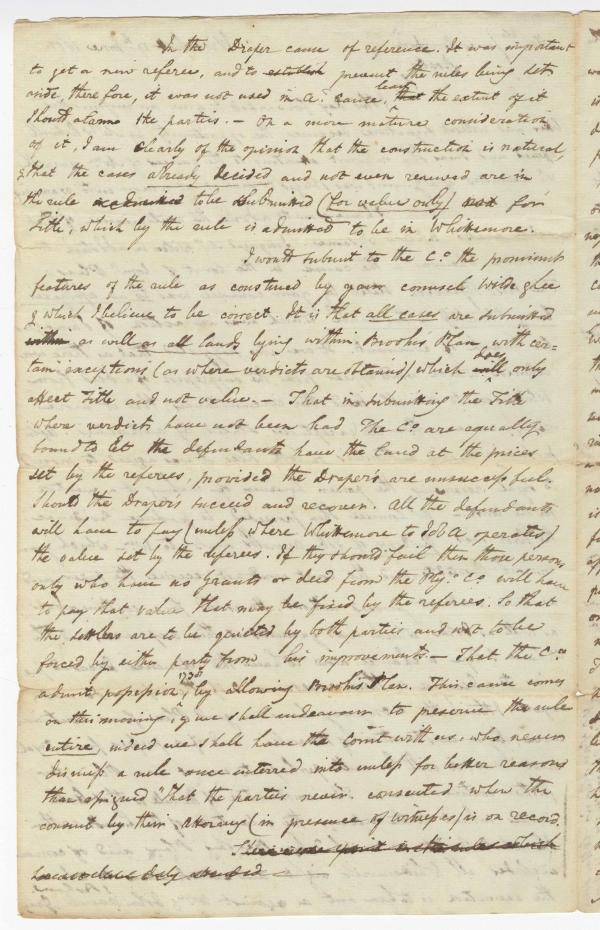 In the Draper cause of reference. It was important
to get a new referee, and to establish prevent the rules being set
aside, therefore, it was not used in a.^r cause, least that the extent of it
should alarm the parties. — On a more mature consideration
of it, I am clearly of the opinion that the construction is natural,
& that the cases already decided and not even renewed are in
the rule admitted to be submitted (for value only) not for
Title, which by the rule is admitted to be in Whittemore.
I would submit to the C.^o the prominent
features of the rule as construed by your counsel Wilde & lee
& which I believe to be correct. It is that all cases are submitted
within as well as all lands lying within Brooks's Plan, with cer-
tain exceptions (as where verdicts are obtained) which will does only
affect Title and not value. — That in submitting the Title
where verdicts have not been had The C.^o are equally
bound to let the defendants have the land at the prices
set by the referees, provided the Draper's are unsuccessful.
Should the Draper's succeed and recover. All the defendants
will have to pay (unless where Whittemore to J o b A operates)
the value set by the referees. If they should fail then those persons
only who have no Grants or deed from the Ply.^o C.^o will have
to pay that value that may be fixed by the referees. So that
the settlers are to be quieted by both parties and not to be
forced by either party from his improvements. — That the C.^o
admit possession, 1738 by allowing Brooks's Plan. This cause comes
on this morning, & we shall endeavour to preserve the rule
entire, indeed we shall have the Court with us, who never
dismiss a rule once entered into unless for better reasons
than assigned "that the parties never consented" when the
consent by their Attorney (in presence of witnesses) is on record.